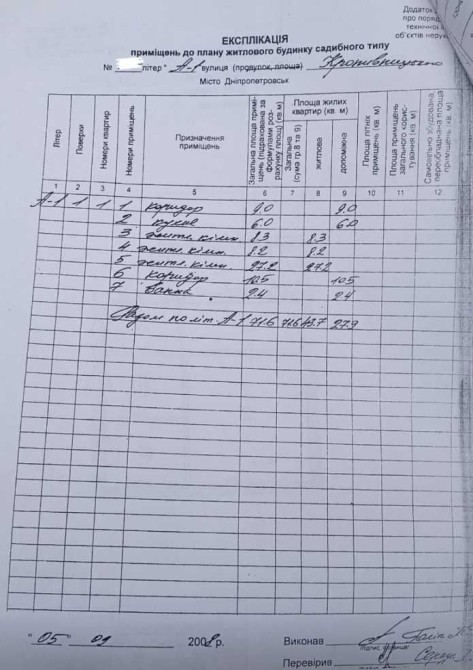 Додаток
про поряд
технічної і
об'єктів нерух
ЕКСПЛІКАЦІЯ
приміщень до плану житлового будинку садибного типу
№ літер " А-1 вулиця (провулок, площа) Кропивницького
Місто Дніпропетровськ
Літер
Поверхи
Номери квартир
Номери приміщень
Призначення приміщень
Загальна площа приміщень (підрахована за формулами розрахунку площ) (кв. м)
Площа жилих квартир (кв. м)
Загальна (сума гр.8 та 9)
житлова
допоміжна
Площа літніх приміщень (кв. м)
Площа приміщень загального користування (кв. м)
Самовільно збудована, переобладнана площа приміщень (кв. м)
1 2 3 4 5 6 7 8 9 10 11 12
А-1 1 1 1 коридор 9.0 9.0
2 кухня 6.0 6.0
3 житл. кімн. 8.3 8.3
4 житл. кімн. 8.2 8.2
5 житл. кімн. 27.2 27.2
6 коридор 10.5 10.5
7 ванна 2.4 2.4
Разом по літ. А-1 71.6 71.6 43.7 27.9
" 05 " 09 2008 р.
Виконав
Перевірив